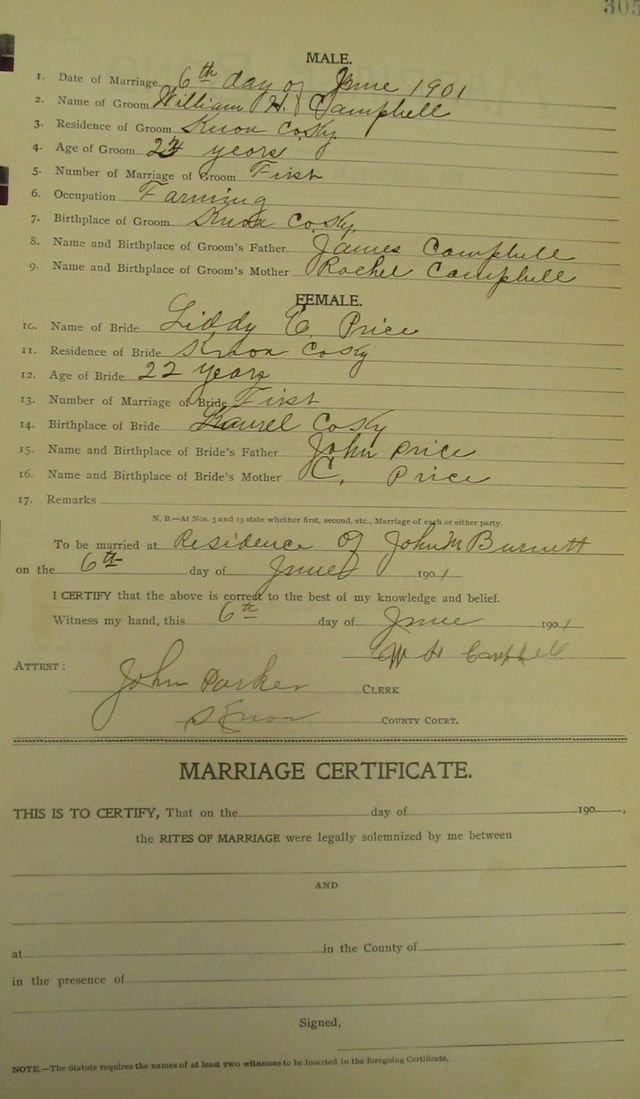 305
MALE.
1. Date of Marriage 6th day of June 1901
2. Name of Groom William H. Campbell
3. Residence of Groom Knox Co. Ky.
4. Age of Groom years
5. Number of Marriage of Groom First
6. Occupation Farming
7. Birthplace of Groom Knox Co. Ky.
8. Name and Birthplace of Groom's Father James Campbell
9. Name and Birthplace of Groom's Mother Rachel Campbell
FEMALE.
10. Name of Bride Liddy E. Price
11. Residence of Bride Knox Co Ky
12. Age of Bride 22 years
13. Number of Marriage of Bride First
14. Birthplace of Bride Laurel Co Ky
15. Name and Birthplace of Bride's Father John Price
16. Name and Birthplace of Bride's Mother C. Price
17. Remarks
N. B.—At Nos. 5 and 13 state whether first, second, etc., Marriage of each or either party.
To be married at Residence of John M Burnett
on the 6th day of June 1901
I CERTIFY that the above is correct to the best of my knowledge and belief.
Witness my hand, this 6th day of June 1901
W H Campbell
ATTEST: John Parker CLERK
Knox COUNTY COURT.
MARRIAGE CERTIFICATE.
THIS IS TO CERTIFY, That on the day of 190 ,
the RITES OF MARRIAGE were legally solemnized by me between
AND
at in the County of
in the presence of
Signed,
NOTE.—The Statute requires the names of at least two witnesses to be inserted in the foregoing Certificate.